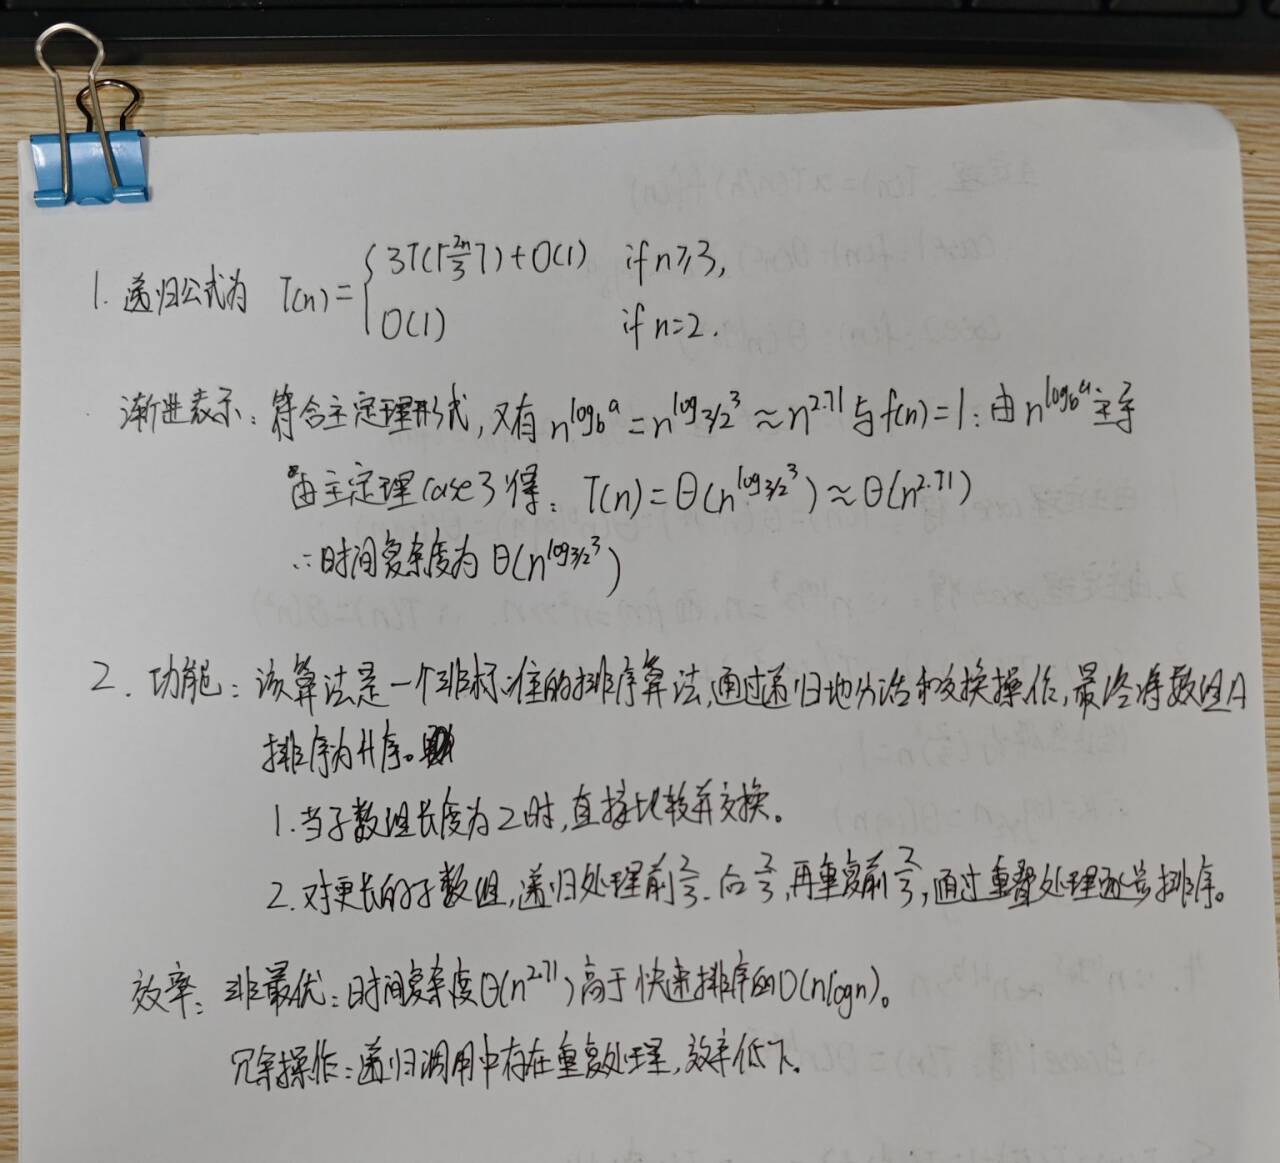 1. 递归公式为 T(n) = { 3T(⌈2n/3⌉) + O(1) if n≥3,
O(1) if n=2.
渐进表示: 符合主定理形式, 又有 n^{log_b a} = n^{log_{3/2} 3} ≈ n^{2.71} 与 f(n)=1: 由 n^{log_b a} 主导
由主定理 case 3 得: T(n) = Θ(n^{log_{3/2} 3}) ≈ Θ(n^{2.71})
∴时间复杂度为 Θ(n^{log_{3/2} 3})
2. 功能: 该算法是一个非标准的排序算法,通过递归地分治和交换操作,最终将数组A
排序为升序。
1. 当子数组长度为2时,直接比较并交换。
2. 对更长的子数组,递归处理前2/3、后2/3,再重复前2/3,通过重叠处理逐步排序。
效率: 非最优: 时间复杂度Θ(n^{2.71})高于快速排序的O(nlogn)。
冗余操作: 递归调用中存在重复处理,效率低下。